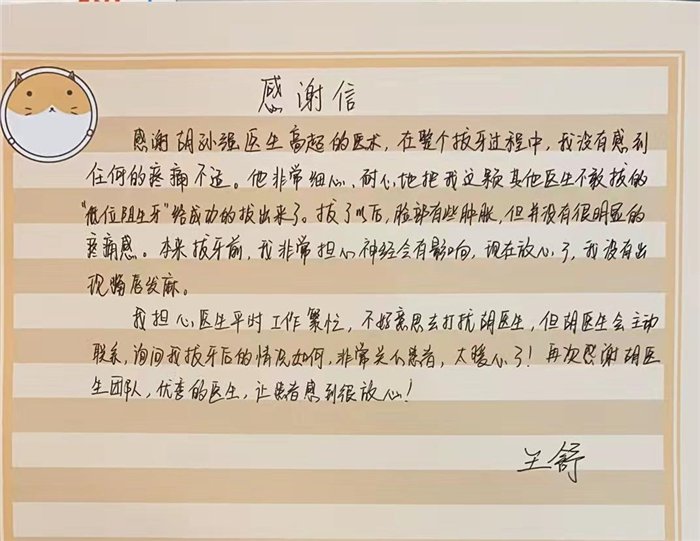 感谢信
感谢胡孙强医生高超的医术，在整个拔牙过程中，我没有感到
任何的疼痛不适。他非常细心、耐心地把我这颗其他医生不敢拔的
“低位阻生牙”给成功的拔出来了。拔了以后，脸部有些肿胀，但并没有很明显的
疼痛感。本来拔牙前，我非常担心神经会有影响，现在放心了，我没有出
现嘴唇发麻。
我担心医生平时工作繁忙，不好意思去打扰胡医生，但胡医生会主动
联系，询问我拔牙后的情况如何，非常关心患者，太暖心了！再次感谢胡医
生团队，优秀的医生，让患者感到很放心！
王舒